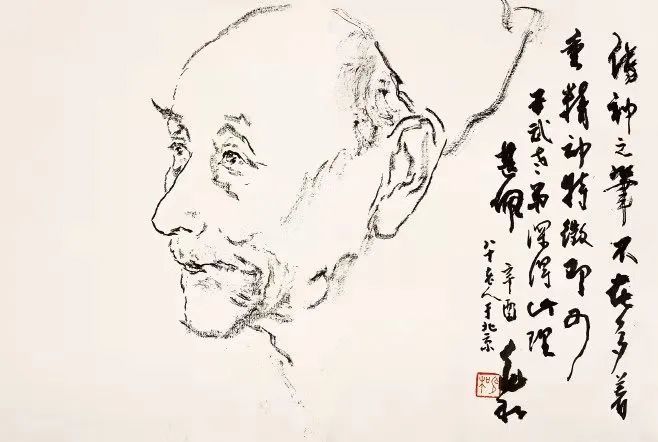 傳神之筆不在多着
重精神特徵即可
子武老弟深得此理
甚佩
辛酉 兆和
八十老人于北京
兆和